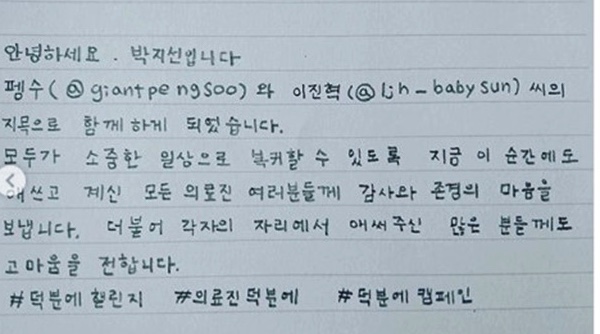 안녕하세요. 박지선입니다
펭수(@giantpengsoo)와 이진혁(@ljh_babysun) 씨의
지목으로 함께하게 되었습니다.
모두가 소중한 일상으로 복귀할 수 있도록 지금 이 순간에도
애쓰고 계신 모든 의료진 여러분들께 감사와 존경의 마음을
보냅니다. 더불어 각자의 자리에서 애써주신 많은 분들께도
고마움을 전합니다.
#덕분에챌린지 #의료진덕분에 #덕분에캠페인